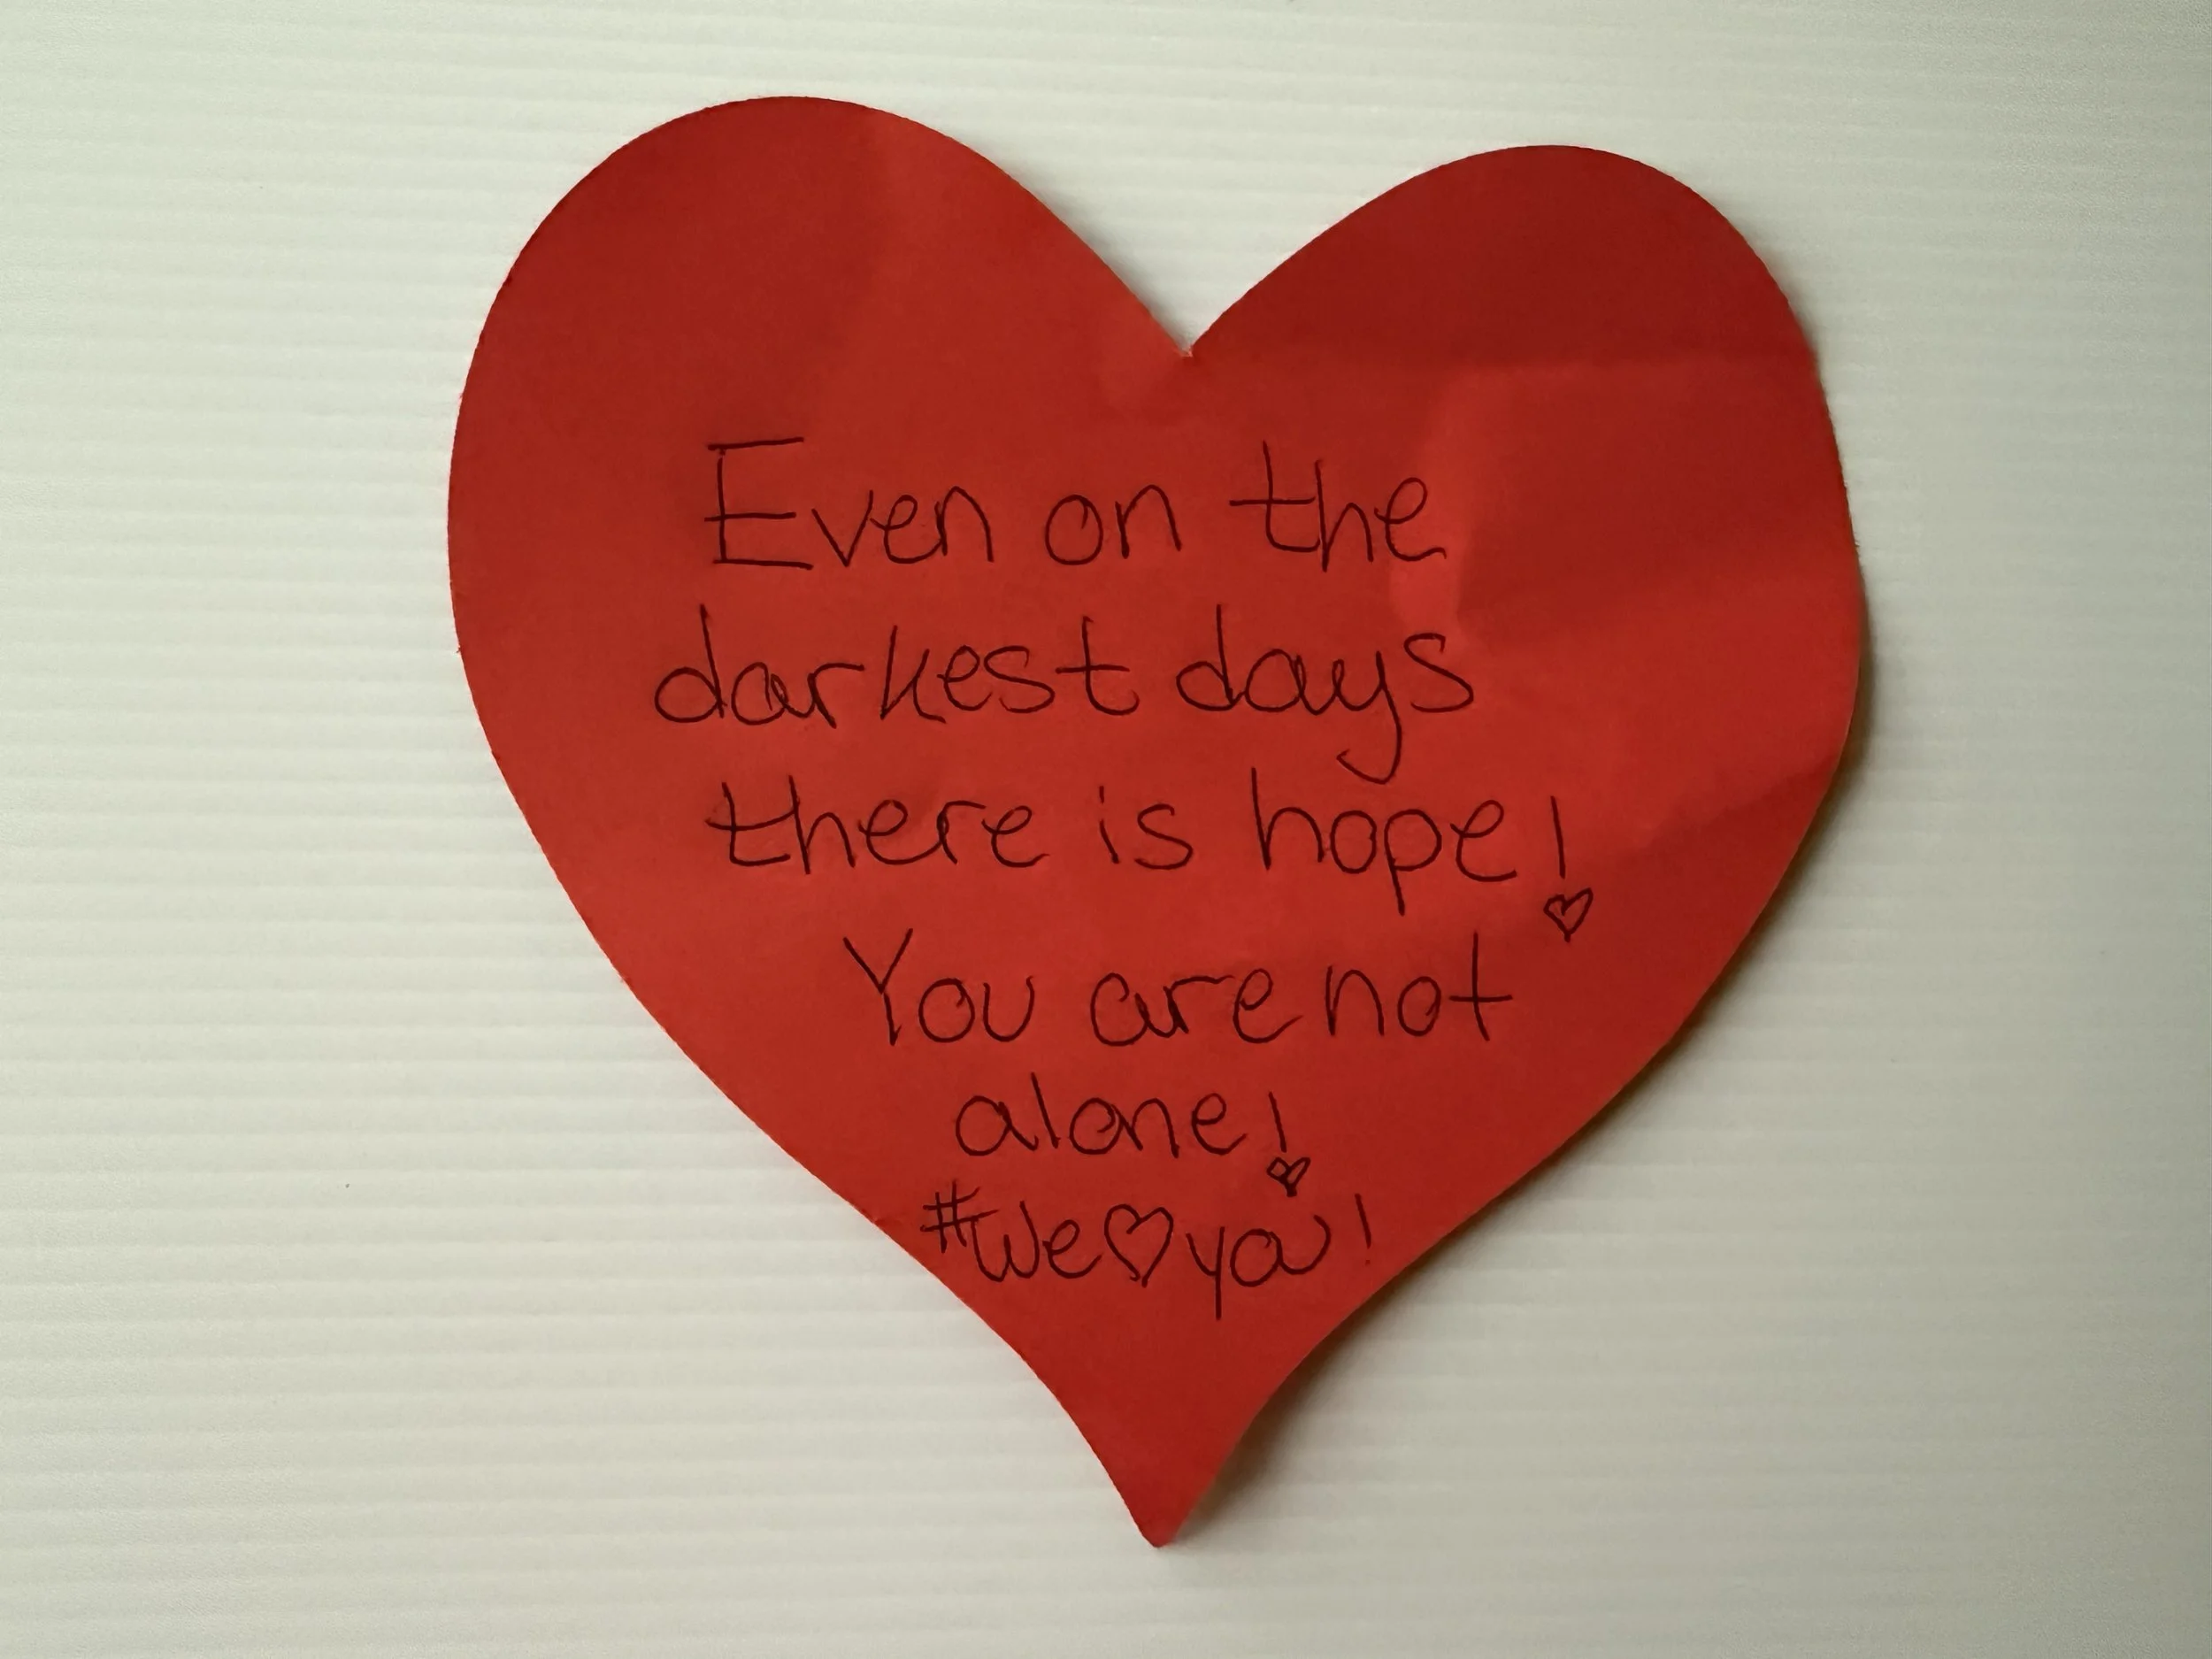 Even on the
darkest days
there is hope!
You are not
alone!
#We♡ya!